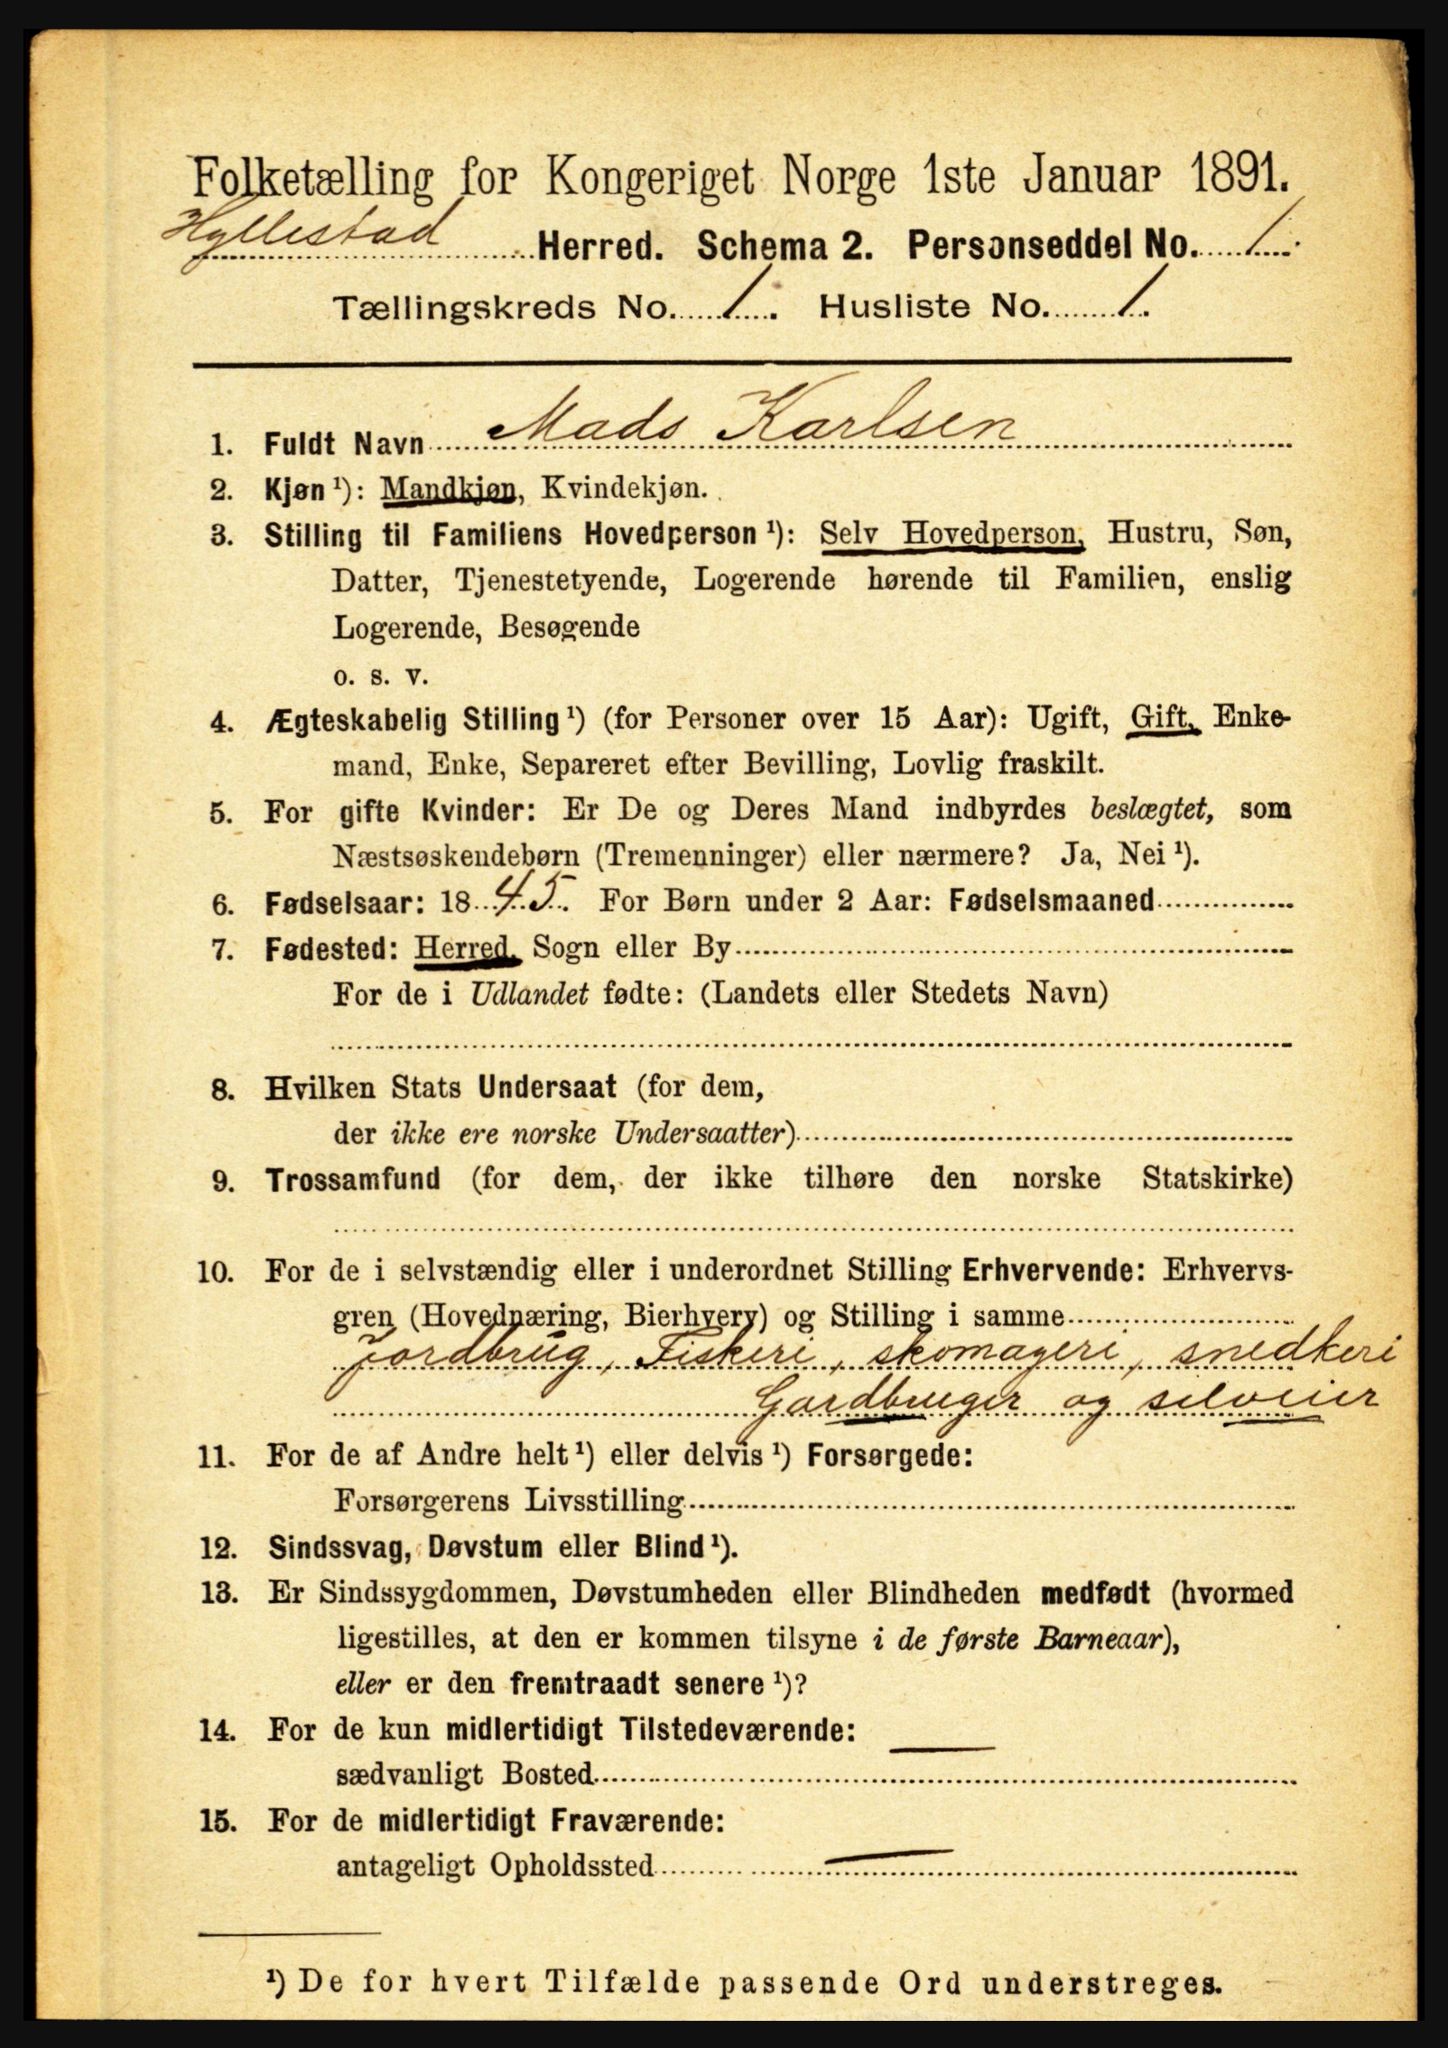 Folketælling for Kongeriget Norge 1ste Januar 1891.
Hyllestad Herred. Schema 2. Personseddel No. 1.
Tællingskreds No. 1. Husliste No. 1.
1. Fuldt Navn Mads Karlsen
2. Kjøn ¹): Mandkjøn, Kvindekjøn.
3. Stilling til Familiens Hovedperson ¹): Selv Hovedperson, Hustru, Søn,
Datter, Tjenestetyende, Logerende hørende til Familien, enslig
Logerende, Besøgende
o. s. v.
4. Ægteskabelig Stilling ¹) (for Personer over 15 Aar): Ugift, Gift, Enke-
mand, Enke, Separeret efter Bevilling, Lovlig fraskilt.
5. For gifte Kvinder: Er De og Deres Mand indbyrdes beslægtet, som
Næstsøskendebørn (Tremenninger) eller nærmere? Ja, Nei ¹).
6. Fødselsaar: 1845. For Børn under 2 Aar: Fødselsmaaned
7. Fødested: Herred, Sogn eller By
For de i Udlandet fødte: (Landets eller Stedets Navn)
8. Hvilken Stats Undersaat (for dem,
der ikke ere norske Undersaatter)
9. Trossamfund (for dem, der ikke tilhøre den norske Statskirke)
10. For de i selvstændig eller i underordnet Stilling Erhvervende: Erhvervs-
gren (Hovednæring, Bierhverv) og Stilling i samme
Jordbrug, Fiskeri, skomageri, snedkeri
Gardbruger og selveier
11. For de af Andre helt ¹) eller delvis ¹) Forsørgede:
Forsørgerens Livsstilling
12. Sindssvag, Døvstum eller Blind ¹).
13. Er Sindssygdommen, Døvstumheden eller Blindheden medfødt (hvormed
ligestilles, at den er kommen tilsyne i de første Barneaar),
eller er den fremtraadt senere ¹)?
14. For de kun midlertidigt Tilstedeværende:
sædvanligt Bosted
15. For de midlertidigt Fraværende:
antageligt Opholdssted
¹) De for hvert Tilfælde passende Ord understreges.